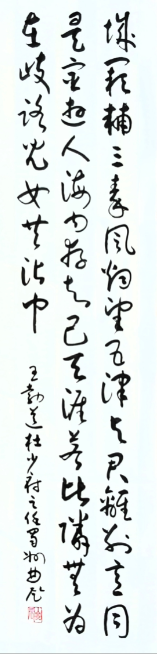 城阙辅三秦风烟望五津与君離别意同
是宦遊人海内存知己天涯若比隣無为
在歧路儿女共沾巾
王勃送杜少府之任蜀州